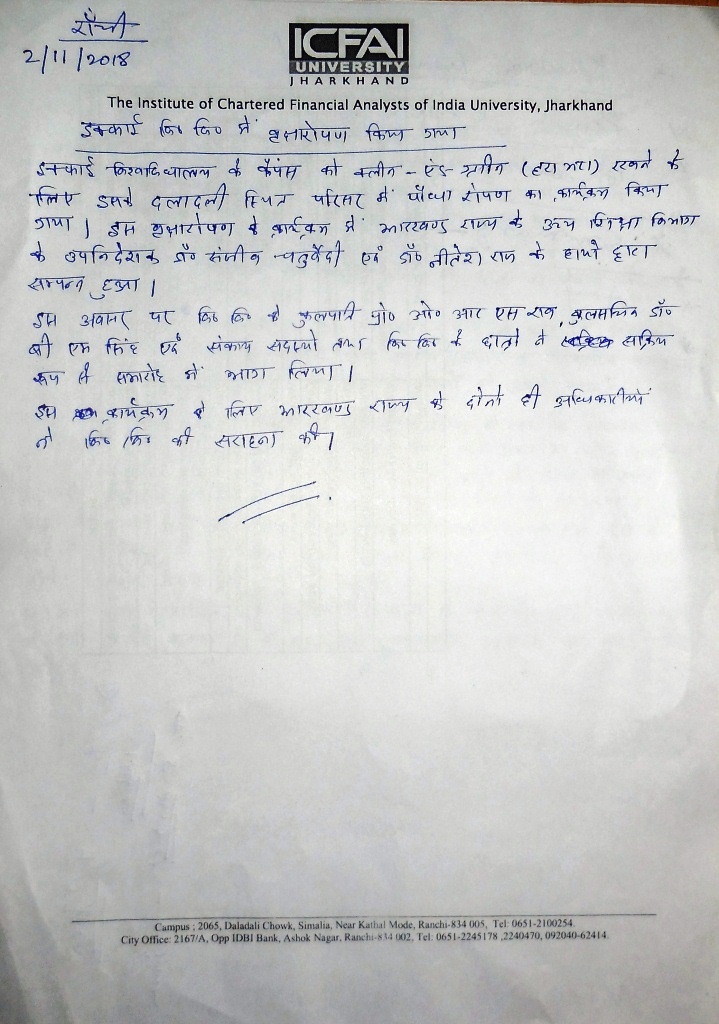 राँची
2/11/2018
ICFAI
UNIVERSITY
JHARKHAND
The Institute of Chartered Financial Analysts of India University, Jharkhand
इक्फाई वि० वि० में वृक्षारोपण किया गया
इक्फाई विश्वविद्यालय के कैंपस को क्लीन - एंड - ग्रीन (हरा भरा) रखने के
लिए इसके दलादली स्थित परिसर में पौधा रोपण का कार्यक्रम किया
गया | इस वृक्षारोपण के कार्यक्रम में झारखण्ड राज्य के उच्च शिक्षा विभाग
के उपनिदेशक डॉ० संजीव चतुर्वेदी एवं डॉ० नीतेश राज के हाथों द्वारा
सम्पन्न हुआ |
इस अवसर पर वि० वि० के कुलपति प्रो० ओ० आर एस राव, कुलसचिव डॉ०
बी एम सिंह एवं संकाय सदस्यों तथा वि० वि० के छात्रों ने सक्रिय
रूप से समारोह में भाग लिया |
इस कार्यक्रम के लिए झारखण्ड राज्य के दोनों ही अधिकारीयों
ने वि० वि० की सराहना की |
Campus : 2065, Daladali Chowk, Simalia, Near Kathal Mode, Ranchi-834 005, Tel: 0651-2100254.
City Office: 2167/A, Opp IDBI Bank, Ashok Nagar, Ranchi-834 002, Tel: 0651-2245178 ,2240470, 092040-62414.